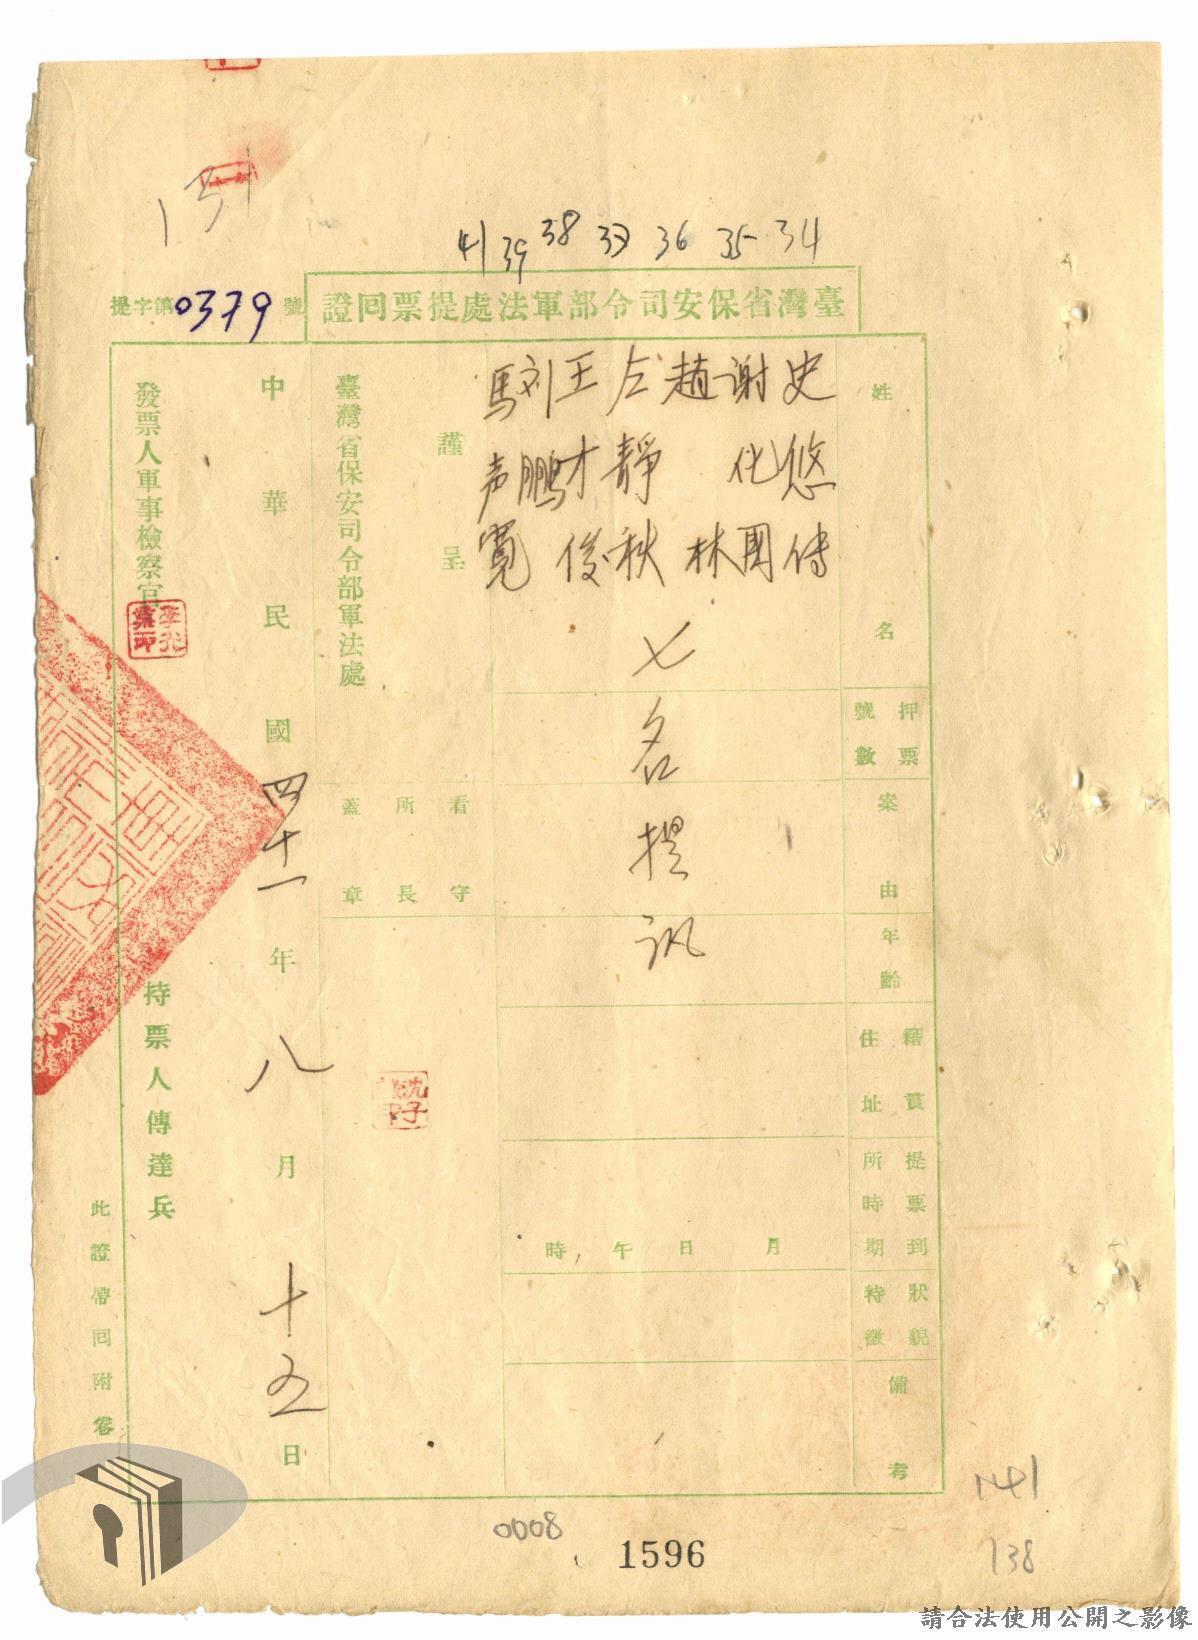 131
41 39 38 33 36 35 34
臺灣省保安司令部軍法處提票回證
提字第0379號
姓名
押票號數
案由
年齡
籍貫住址
提票到所時期
狀貌特徵
備考
史悠傳
謝化國
趙林
左靜秋
王才俊
刘鵬
馬声寬
七名提訊
月日午時
謹呈
臺灣省保安司令部軍法處
看守所長蓋章
中華民國四十一年八月十五日
發票人軍事檢察官
持票人傳達兵
此證帶回附卷
0008
1596
141
138
請合法使用公開之影像